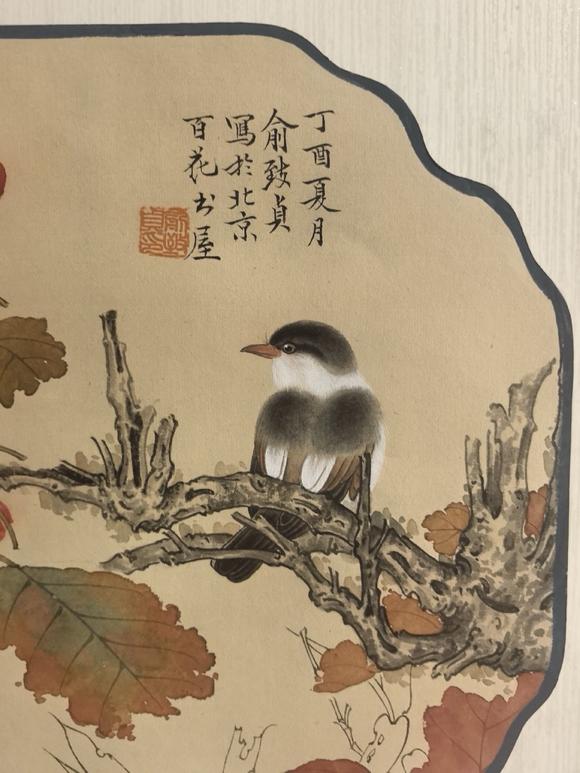 丁酉夏月
俞致貞
寫於北京
百花书屋